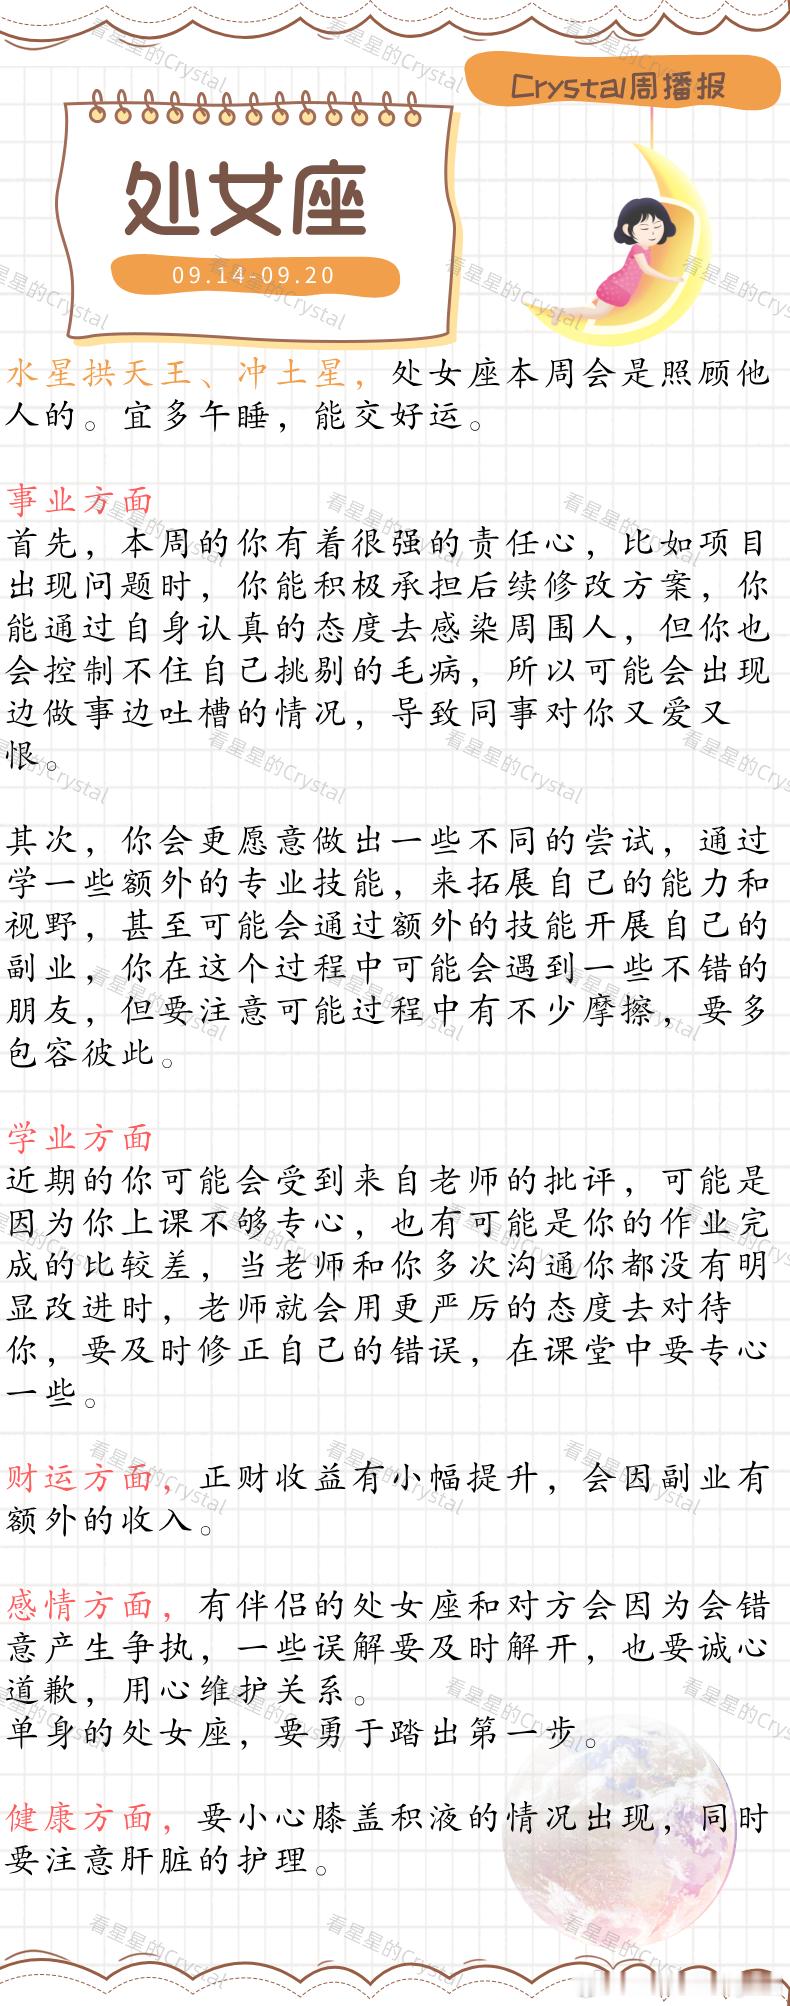 Crystal周播报
处女座
09.14-09.20
水星拱天王、冲土星，处女座本周会是照顾他
人的。宜多午睡，能交好运。
事业方面
首先，本周的你有着很强的责任心，比如项目
出现问题时，你能积极承担后续修改方案，你
能通过自身认真的态度去感染周围人，但你也
会控制不住自己挑剔的毛病，所以可能会出现
边做事边吐槽的情况，导致同事对你又爱又
恨。
其次，你会更愿意做出一些不同的尝试，通过
学一些额外的专业技能，来拓展自己的能力和
视野，甚至可能会通过额外的技能开展自己的
副业，你在这个过程中可能会遇到一些不错的
朋友，但要注意可能过程中有不少摩擦，要多
包容彼此。
学业方面
近期的你可能会受到来自老师的批评，可能是
因为你上课不够专心，也有可能是你的作业完
成的比较差，当老师和你多次沟通你都没有明
显改进时，老师就会用更严厉的态度去对待
你，要及时修正自己的错误，在课堂中要专心
一些。
财运方面，正财收益有小幅提升，会因副业有
额外的收入。
感情方面，有伴侣的处女座和对方会因为会错
意产生争执，一些误解要及时解开，也要诚心
道歉，用心维护关系。
单身的处女座，要勇于踏出第一步。
健康方面，要小心膝盖积液的情况出现，同时
要注意肝脏的护理。
看星星的Crystal